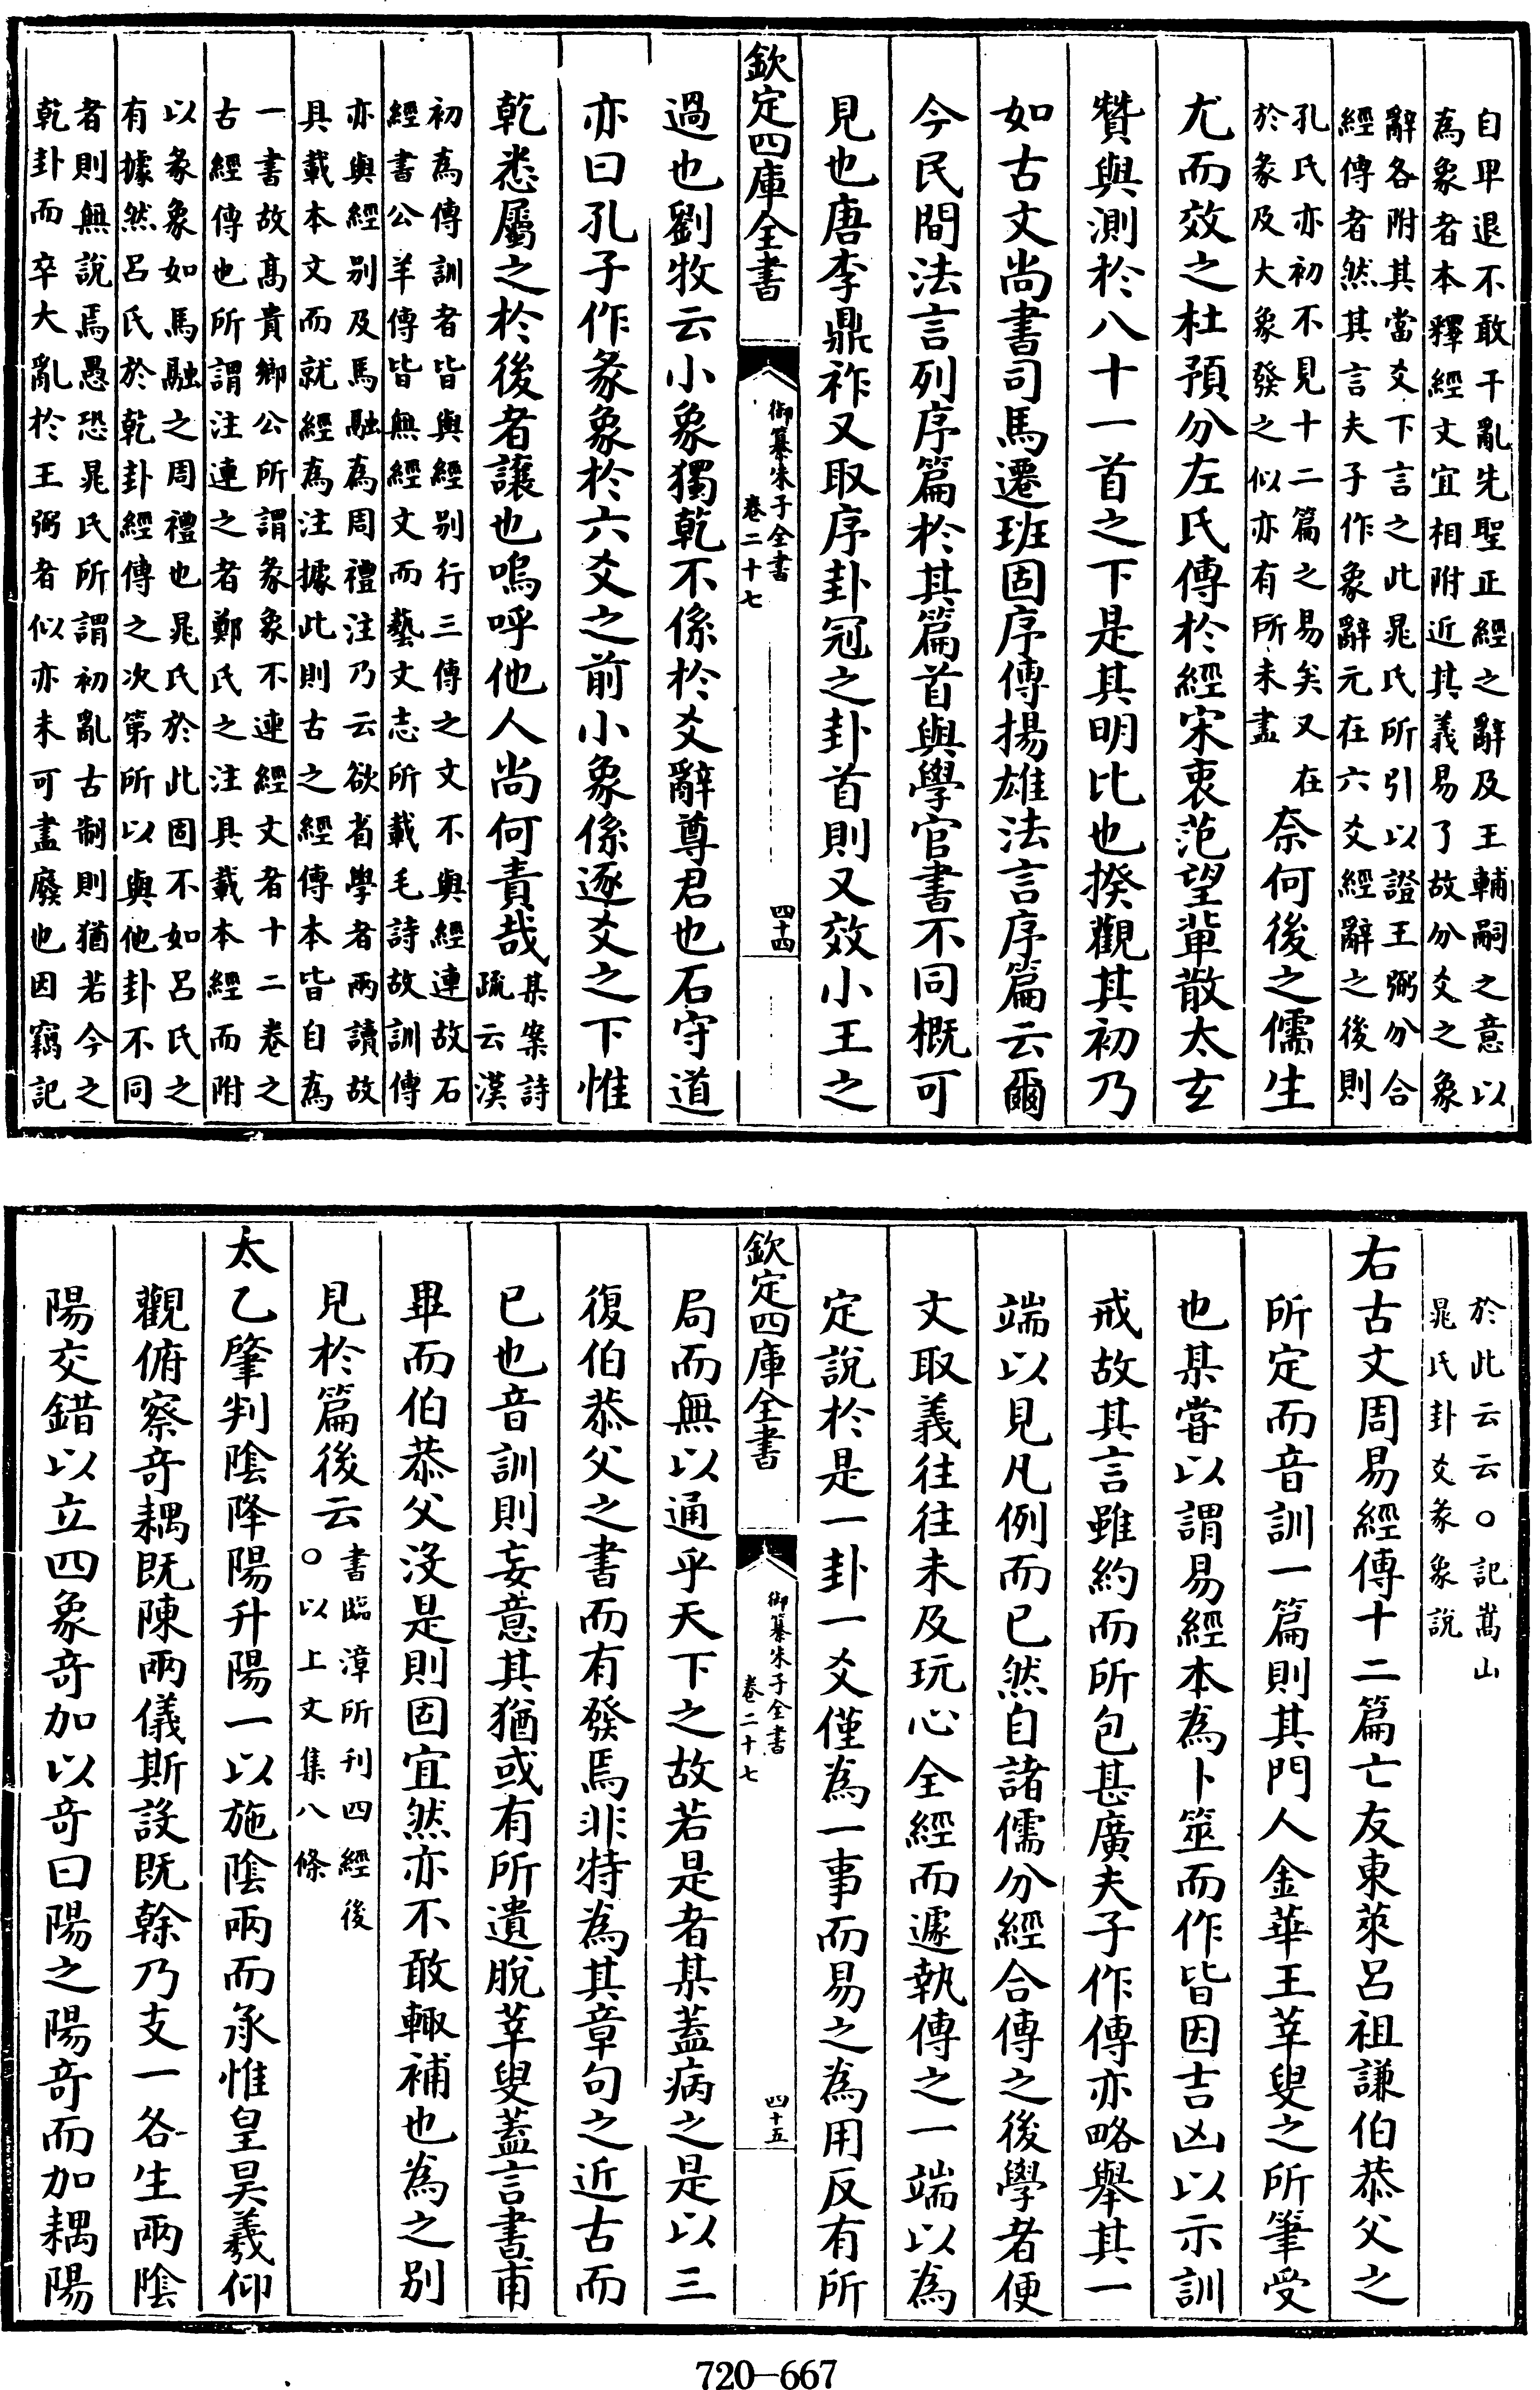 自卑退不敢干亂先聖正經之辭及王輔嗣之意以
為象者本釋經文宜相附近其義易了故分爻之象
辭各附其當爻下言之此晁氏所引以證王弼分合
經傳者然其言夫子作象辭元在六爻經辭之後則
孔氏亦初不見十二篇之易矣又在
於彖及大象發之似亦有所未盡
奈何後之儒生
尤而效之杜預分左氏傳於經宋衷范望輩散太玄
贊與測於八十一首之下是其明比也揆觀其初乃
如古文尚書司馬遷班固序傳揚雄法言序篇云爾
今民間法言列序篇於其篇首與學官書不同概可
見也唐李鼎祚又取序卦冠之卦首則又效小王之
欽定四庫全書
御纂朱子全書
卷二十七
四十四
過也劉牧云小象獨乾不係於爻辭尊君也石守道
亦曰孔子作彖象於六爻之前小象係逐爻之下惟
乾悉屬之於後者讓也嗚呼他人尚何責哉
某案詩
疏云漢
初為傳訓者皆與經別行三傳之文不與經連故石
經書公羊傳皆無經文而藝文志所載毛詩故訓傳
亦與經別及馬融為周禮注乃云欲省學者兩讀故
具載本文而就經為注據此則古之經傳本皆自為
一書故高貴鄉公所謂彖象不連經文者十二卷之
古經傳也所謂注連之者鄭氏之注具載本經而附
以彖象如馬融之周禮也晁氏於此固不如呂氏之
有據然呂氏於乾卦經傳之次第所以與他卦不同
者則無說焉愚恐晁氏所謂初亂古制則猶若今之
乾卦而卒大亂於王弼者似亦未可盡廢也因竊記
於此云云○記嵩山
晁氏卦爻彖象說
右古文周易經傳十二篇亡友東萊呂祖謙伯恭父之
所定而音訓一篇則其門人金華王莘叟之所筆受
也某嘗以謂易經本為卜筮而作皆因吉凶以示訓
戒故其言雖約而所包甚廣夫子作傳亦略舉其一
端以見凡例而已然自諸儒分經合傳之後學者便
文取義往往未及玩心全經而遽執傳之一端以為
定說於是一卦一爻僅為一事而易之為用反有所
欽定四庫全書
御纂朱子全書
卷二十七
四十五
局而無以通乎天下之故若是者某蓋病之是以三
復伯恭父之書而有發焉非特為其章句之近古而
已也音訓則妄意其猶或有所遺脫莘叟蓋言書甫
畢而伯恭父沒是則固宜然亦不敢輒補也為之別
見於篇後云
書臨漳所刊四經後
○以上文集八條
太乙肇判陰降陽升陽一以施陰兩而承惟皇昊羲仰
觀俯察奇耦既陳兩儀斯設既幹乃支一各生兩陰
陽交錯以立四象奇加以奇曰陽之陽奇而加耦陽
720-667